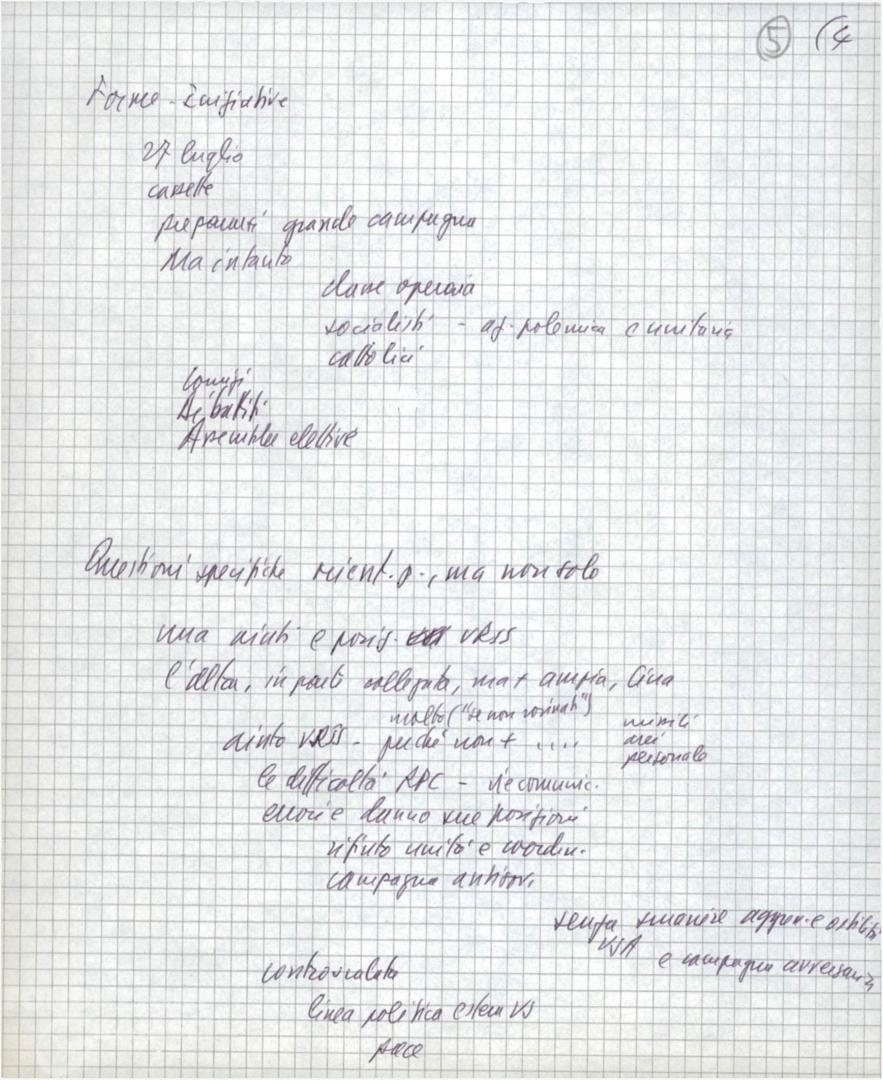 5 (4
Forme - Iniziative
27 luglio
cartelle
prepararsi grande campagna
Ma intanto
classe operaia
socialisti - polemica e unitaria
cattolici
Comizi
Dibattiti
Assemblee elettive
Questioni specifiche orient. p., ma non solo
una aiuti e posiz. URSS
l'altra, in parte collegata, ma + ampia, Cina
molto ("se non sovinati")
aiuto URSS - perché non + ....
missili
aerei
personale
le difficoltà RPC - ile comunic.
errori e danno sue posizioni
rifiuto unità e coordin.
campagna antisov.
senza smanire aggress. e ostilità
USA e campagna avversaria
controscalata
linea politica estera US
pace